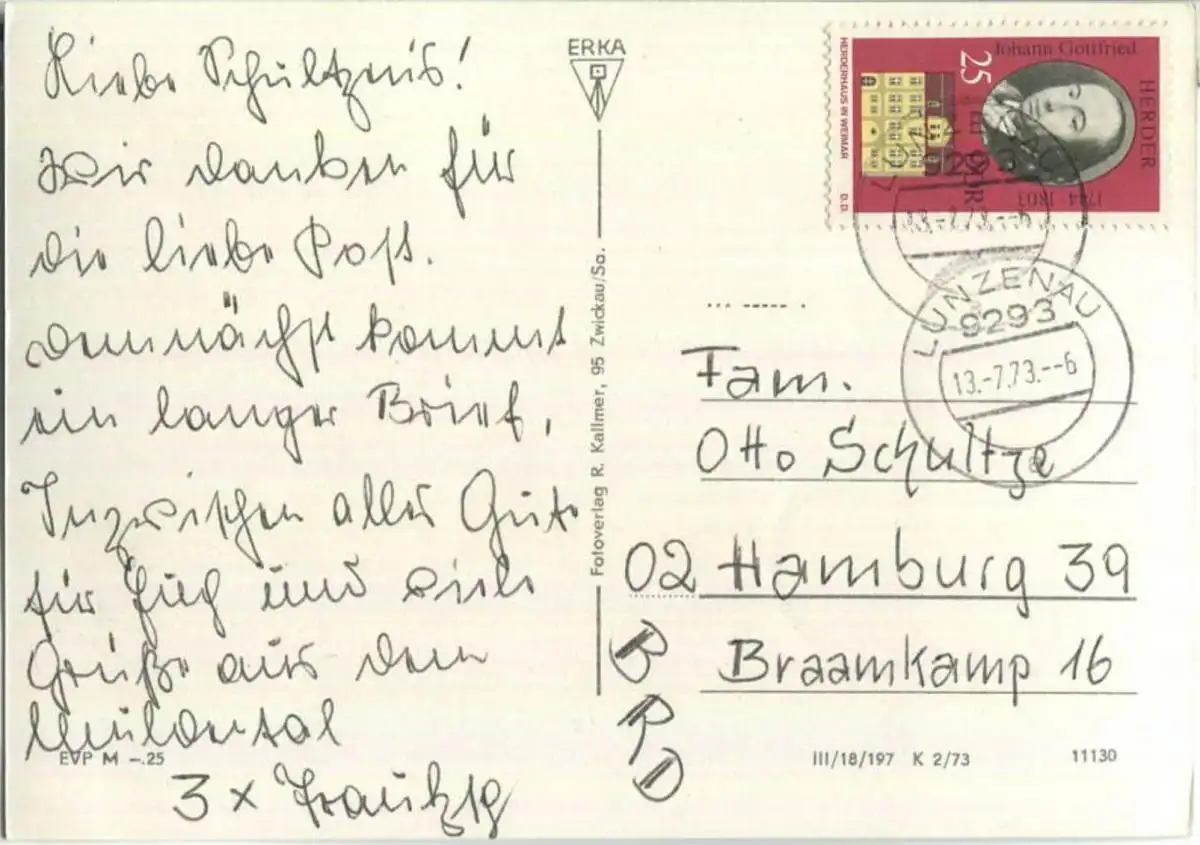 Liebe Schultzeńs!
Wir danken für
die liebe Post.
Demnächst kommt
ein langer Brief.
Inzwischen alles Gute
für Euch und viele
Grüße aus dem
Muldental
3 x
EVP M -.25
ERKA
Fotoverlag R. Kallmer, 95 Zwickau/Sa.
Johann Gottfried
HERDER
1744 1803
25
DDR
HERDERHAUS IN WEIMAR
LUNZENAU
9293
13.-7.73.--6
Fam.
Otto Schultze
02 Hamburg 39
Braamkamp 16
BRD
III/18/197 K 2/73
11130